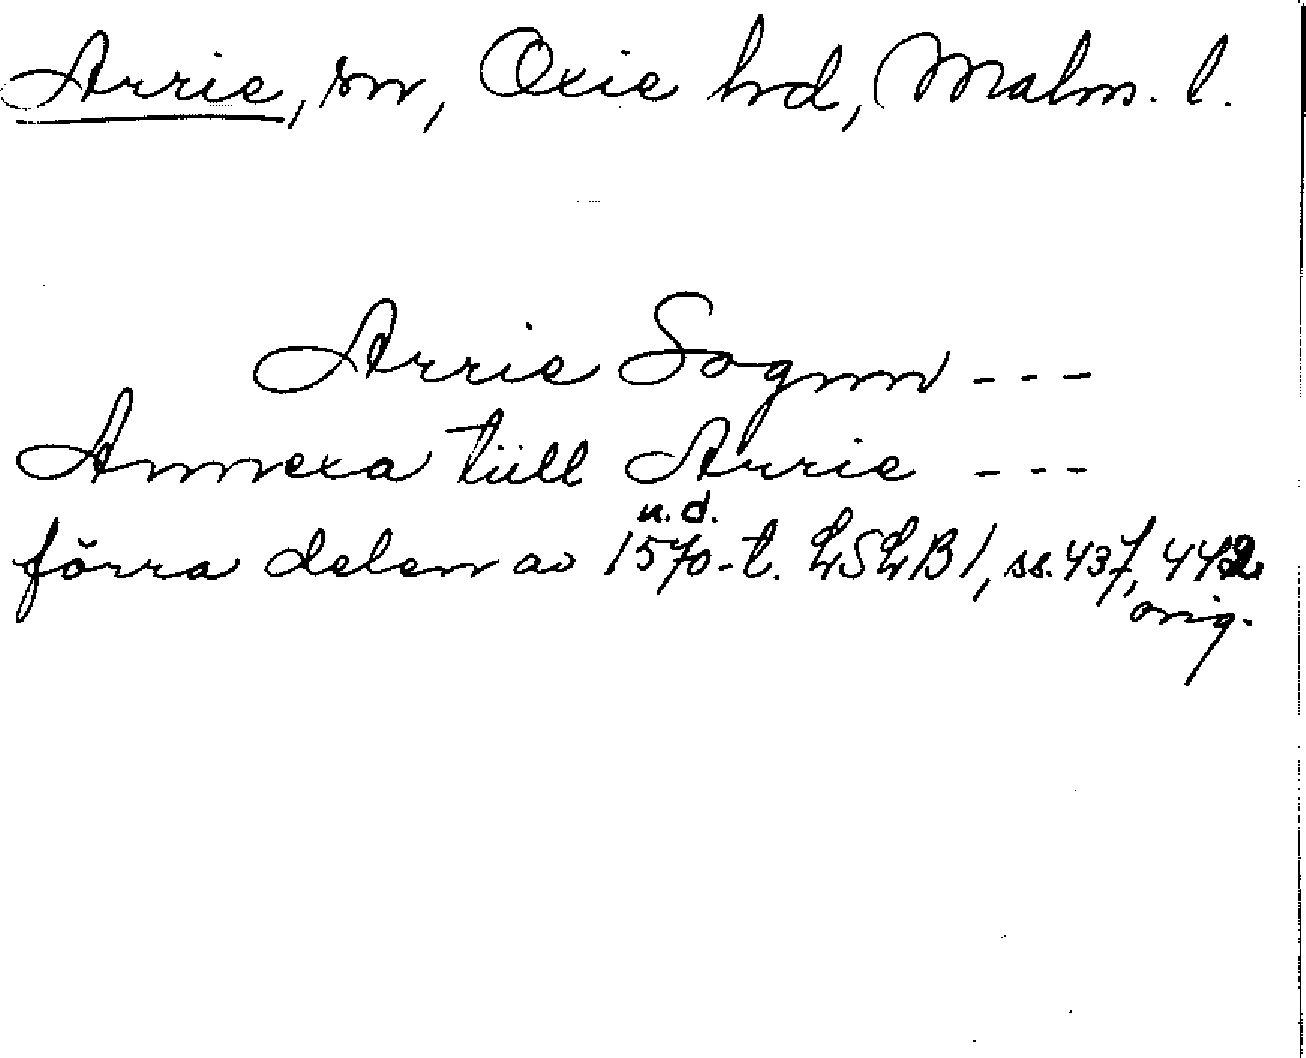 Arrie, sn, Oxie hd, Malm. l.
Arrie Sognn ---
Annexa tüll Arrie ---
u. d.
förra delen av 1570-t. LSLB1, ss. 437, 442
orig.